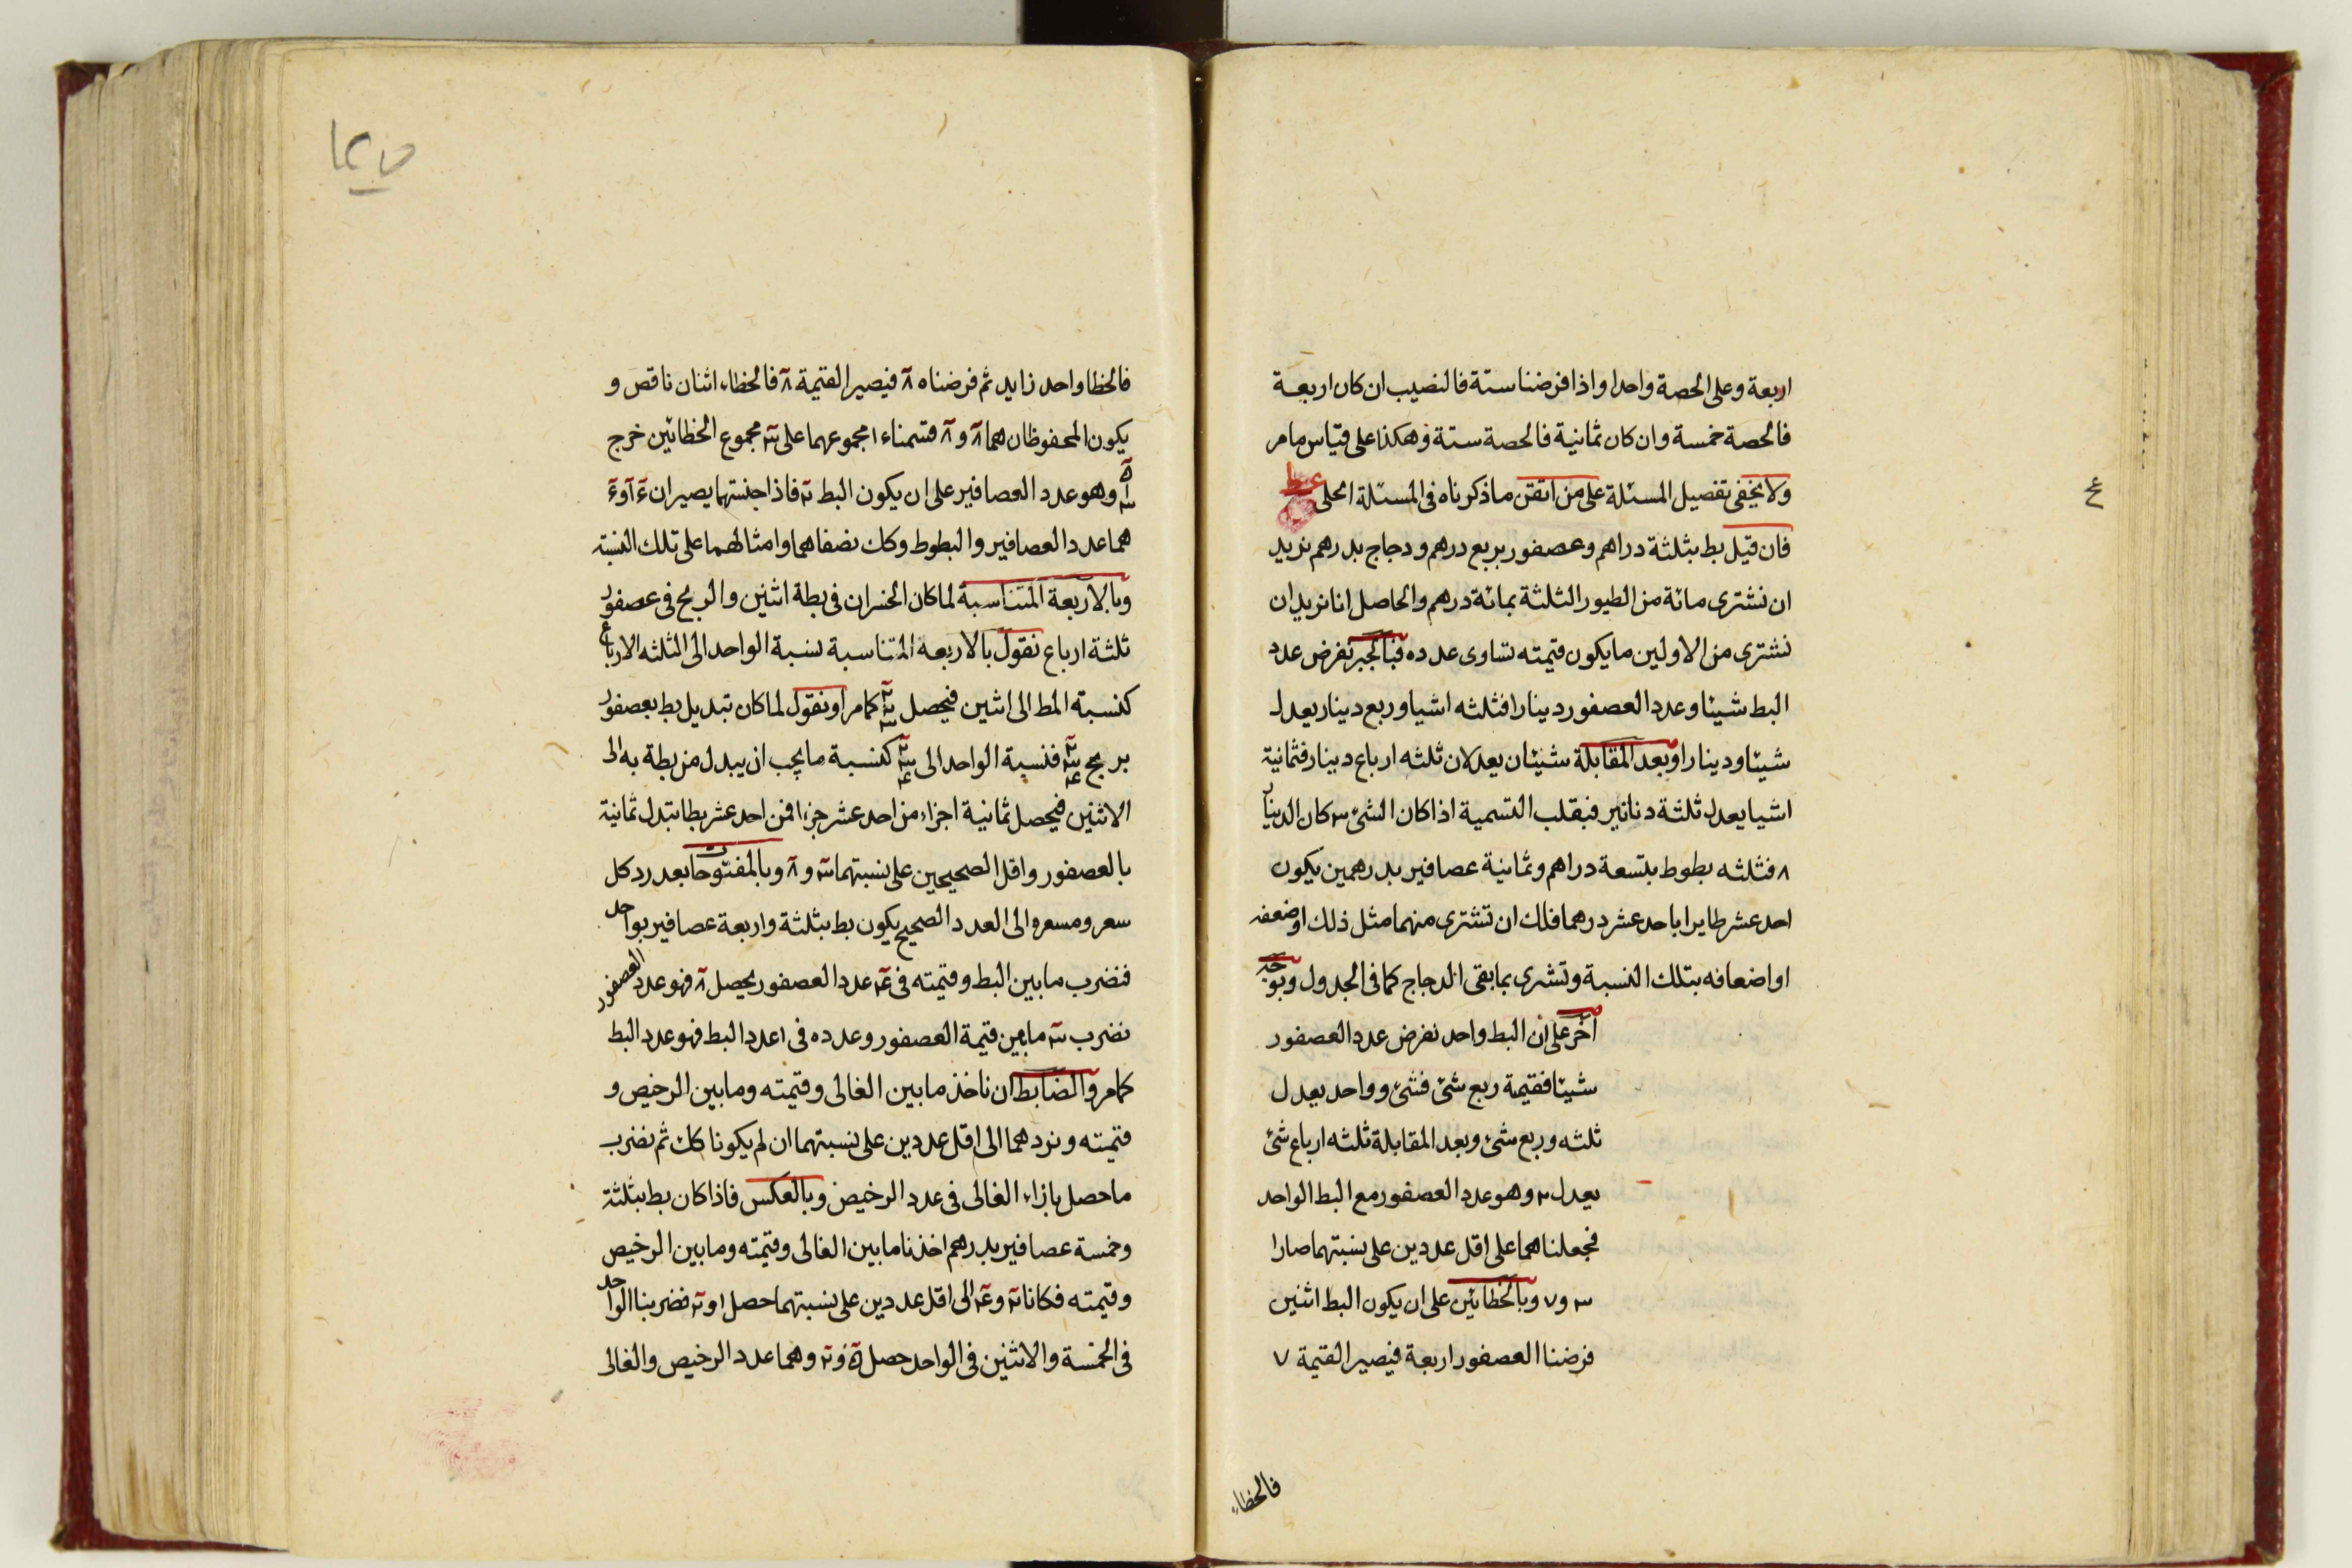 اربعة وعلى الحصة واحدا واذا فرضنا ستة فالنصيب ان كان اربعة
فالحصة خمسة وان كان ثمانية فالحصة ستة وهكذا على قياس ما مر
ولا يخفى تفصيل المسئلة على من اتقن ما ذكرناه فى المسئلة الحلى
فان قيل بط بثلثة دراهم وعصفور بربع درهم ودجاج بدرهم نريد
ان نشترى مائة من الطيور الثلثة بمائة درهم والحاصل انا نريد ان
نشترى من الاولين ما يكون قيمته تساوى عدده فبالجبر نفرض عدد
البط شيئا وعدد العصفور دينارا فثلثه اشيا وربع دينار يعدل
شيئا ودينارا وبعد المقابلة شيئان يعدلان ثلثه ارباع دينار فثمانية
اشيا يعدل ثلثة دنانير فبقلب التسمية اذا كان الشئ ٣ كان الدينار
٨ فثلثه بطوط بتسعة دراهم وثمانية عصافير بدرهمين يكون
احد عشر طايرا باحد عشر درهما فلك ان تشترى منهما مثل ذلك او ضعفه
او اضعافه بتلك النسبة وتشترى بما بقى الدجاج كما فى الجدول وبوجه
آخر على ان البط واحد نفرض عدد العصفور
شيئا فقيمة ربع شئ فشئ وواحد يعدل
ثلثه وربع شئ وبعد المقابلة ثلثه ارباع شئ
يعدل ٢ وهو عدد العصفور مع البط الواحد
فجعلناهما على اقل عددين على نسبتهما صارا
٣ و ٧ وبالخطائين على ان يكون البط اثنين
فرضنا العصفور اربعة فيصير القيمة ٧
فالخطاء
ع
فالخطا واحد زايد ثم فرضناه ٨ فيصير القيمة ٨ فالخطاء اثنان ناقص و
يكون المحفوظان هما ٨ و ٨ قسمناء ا مجموعهما على ٣ مجموع الخطائين خرج
وهو عدد العصافير على ان يكون البط ٢ فاذا جنستهما يصيران
هما عدد العصافير والبطوط وكك نصفاهما وامثالهما على تلك النسبة
وبالاربعة المتناسبة لما كان الخسران فى بطة اثنين والربح فى عصفور
ثلثة ارباع نقول بالاربعة المتناسبة نسبة الواحد الى الثلثه الارباع
كنسبة المط الى اثنين فيحصل كما مر او نقول لما كان تبديل بط بعصفور
بربح فنسبة الواحد الى كنسبة ما يجب ان يبدل من بطة به الى
الاثنين فيحصل ثمانية اجزاء من احد عشر جزءا فمن احد عشر بطا يتبدل ثمانية
بالعصفور واقل الصحيحين على نسبتهما ٣ و ٨ وبالمفتوحات بعد رد كل
سعر ومسعره الى العدد الصحيح يكون بط بثلثة واربعة عصافير بواحد
فنضرب ما بين البط وقيمته فى ٤ عدد العصفور يحصل ٨ فهو عدد العصفور
نضرب ٣ ما بين قيمة العصفور وعدده فى ١ عدد البط فهو عدد البط
كما مر والضابط ان ناخذ ما بين الغالى وقيمته وما بين الرخيص و
قيمته ونردهما الى اقل عددين على نسبتهما ان لم يكونا كك ثم نضرب
ما حصل بازاء الغالى فى عدد الرخيص وبالعكس فاذا كان بط بثلثة
وخمسة عصافير بدرهم اخذنا ما بين الغالى وقيمته وما بين الرخيص
وقيمته فكانا ٢ و ٤ الى اقل عددين على نسبتهما حصل ١ و ٢ فضربنا الواحد
فى الخمسة والاثنين فى الواحد حصل ٥ و ٢ وهما عدد الرخيص والغالى